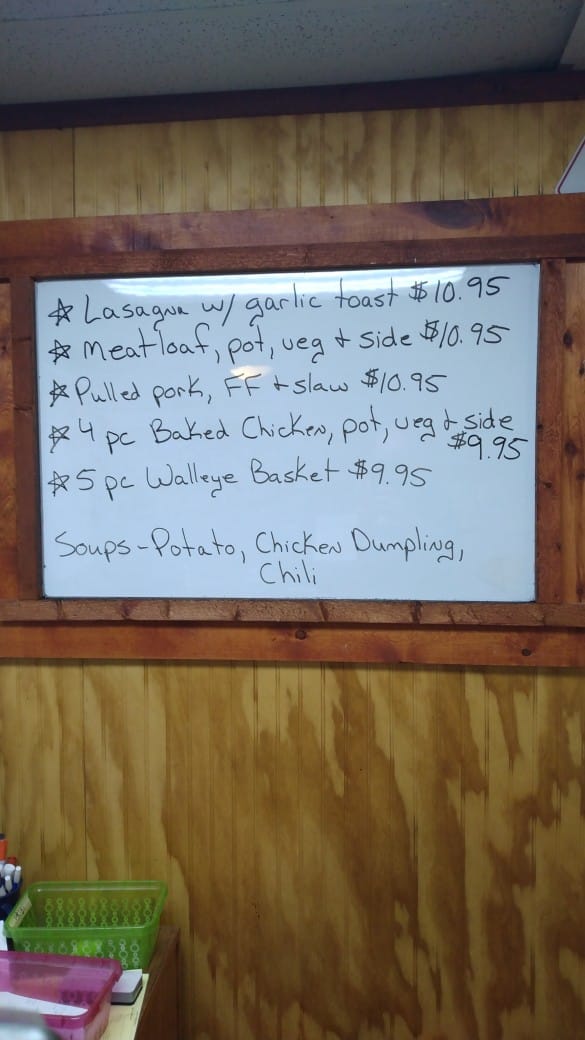 ☆ Lasagna w/ garlic toast $10.95
☆ Meatloaf, pot, veg + side $10.95
☆ Pulled pork, FF + slaw $10.95
☆ 4 pc Baked Chicken, pot, veg + side
$9.95
☆ 5 pc Walleye Basket $9.95
Soups - Potato, Chicken Dumpling,
Chili